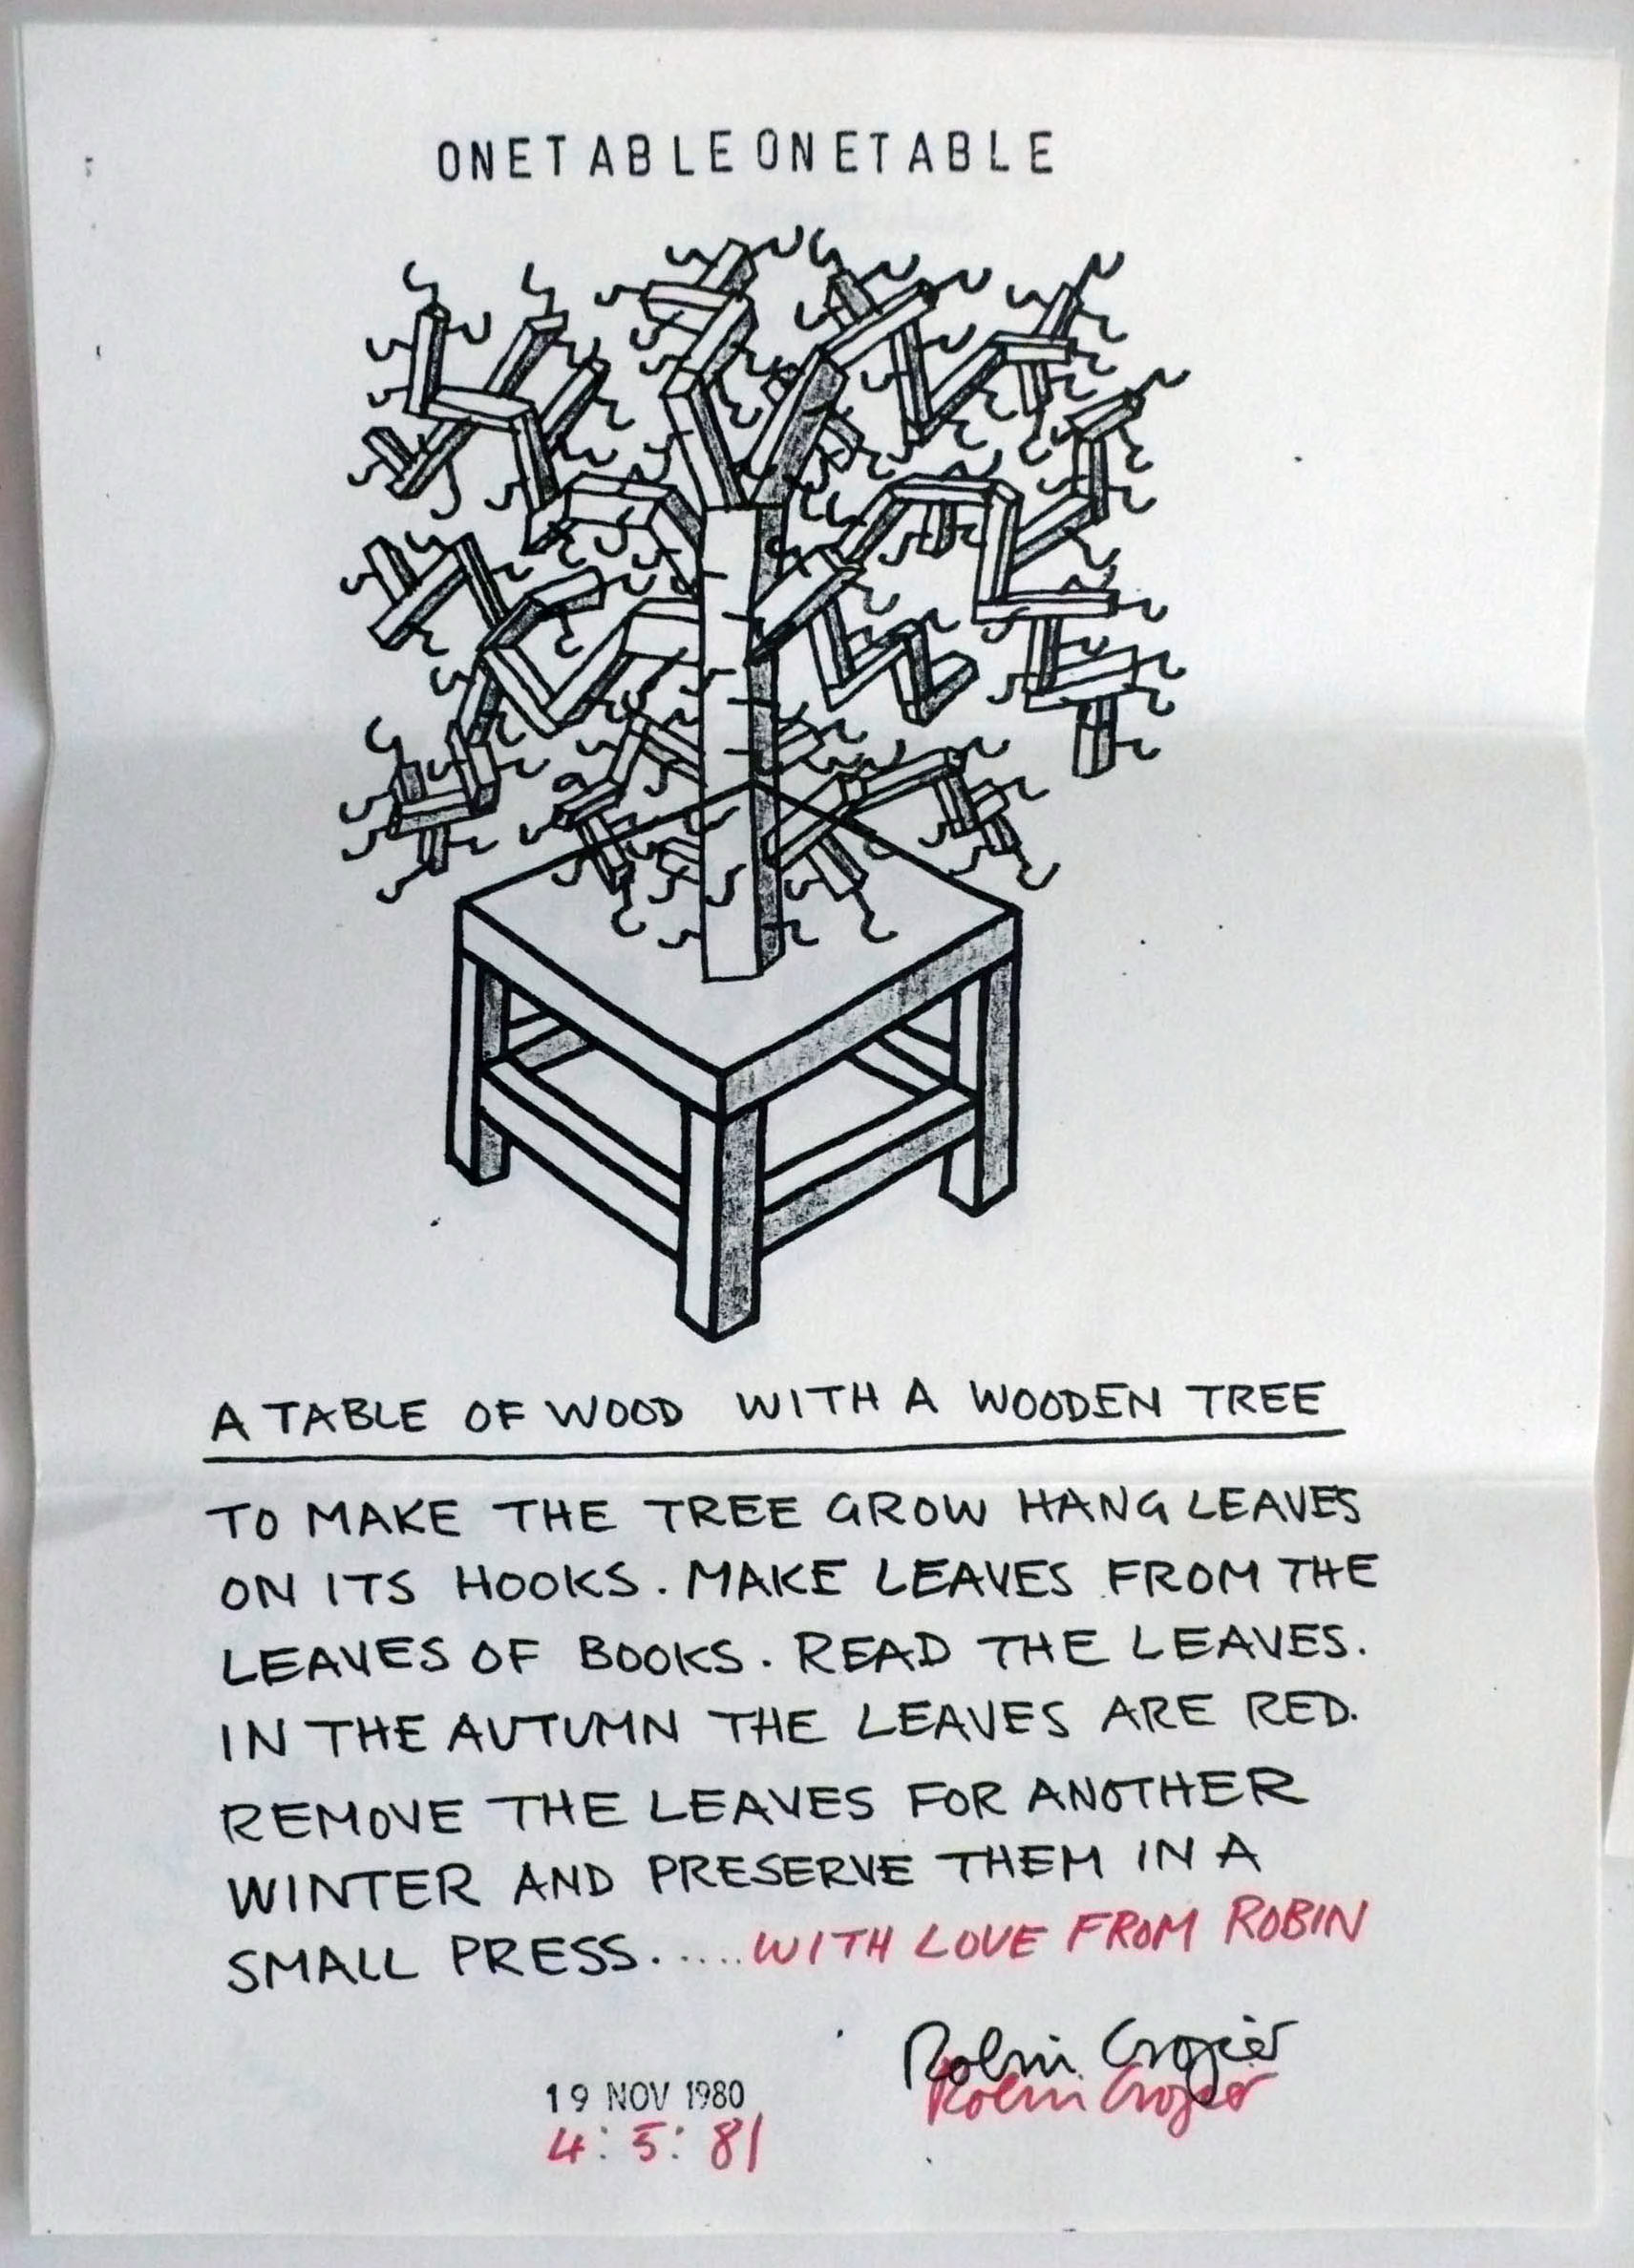 ONETABLEONETABLE
A TABLE OF WOOD WITH A WOODEN TREE
TO MAKE THE TREE GROW HANG LEAVES
ON ITS HOOKS. MAKE LEAVES FROM THE
LEAVES OF BOOKS. READ THE LEAVES.
IN THE AUTUMN THE LEAVES ARE RED.
REMOVE THE LEAVES FOR ANOTHER
WINTER AND PRESERVE THEM IN A
SMALL PRESS.....WITH LOVE FROM ROBIN
Robin Crozier
Robin Crozier
19 NOV 1980
4:5:81